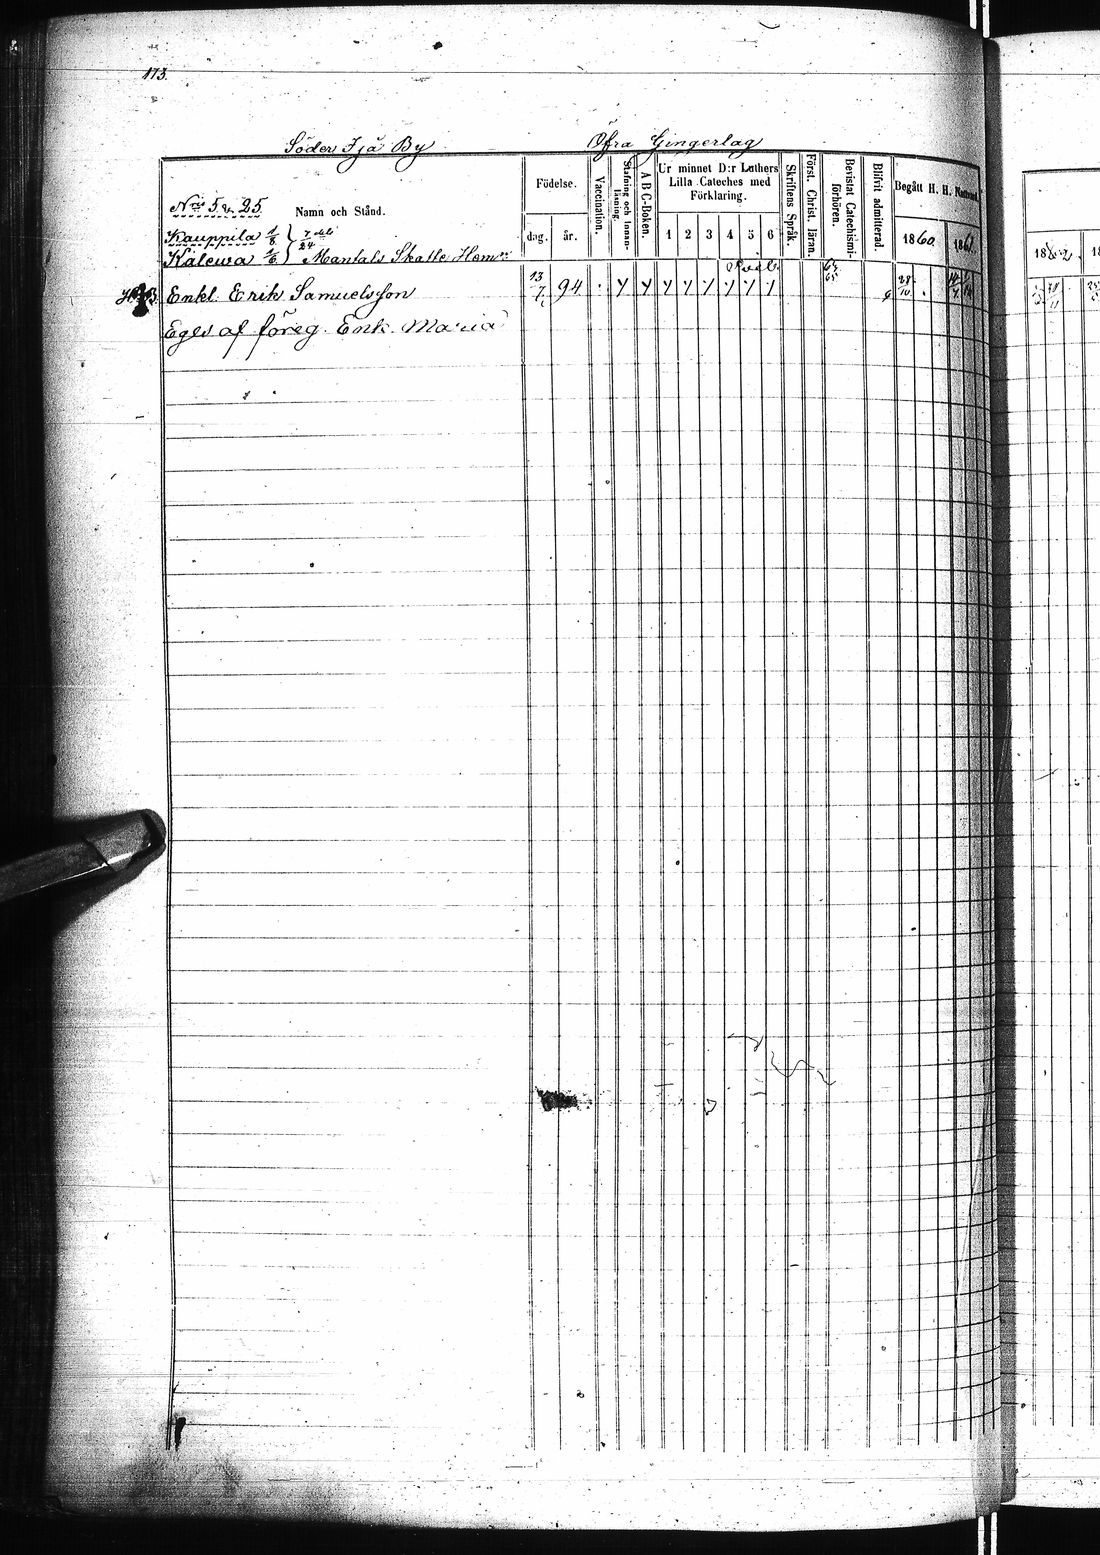 173.
Söder Ijå By Öfra Gingerlag
Nris 5 & 25. Namn och Stånd.
Kauppila 1/8 } 7/24 del
Kalewa 1/6 } Mantals Skatte Hemn
Födelse.
dag. år.
Vaccination.
Stafning och Innanläsning.
A B C-Boken.
Ur minnet D:r Luthers
Lilla Cateches med
Förklaring.
1 2 3 4 5 6
Skriftens Språk.
Först. Christ. läran.
Bevistat Catechismi-
förhören.
Blifvit admitterad.
Begått H. H. Nattvard.
1860. 1861.
1862.
Enkl. Erik Samuelsson 13/7 94.
Eges af föreg. Enk. Maria